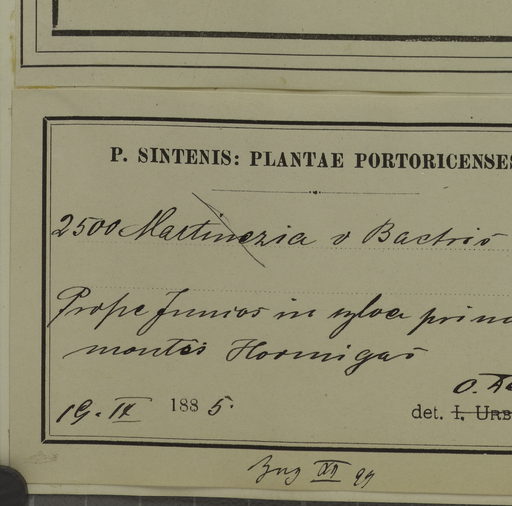 P. SINTENIS: PLANTAE PORTORICENSES
2500 Martinezia v Bactris
Prope Juncos in sylva prim
montis Hormigas
O.
19. IX 1885.
det. I. URB
XI 99